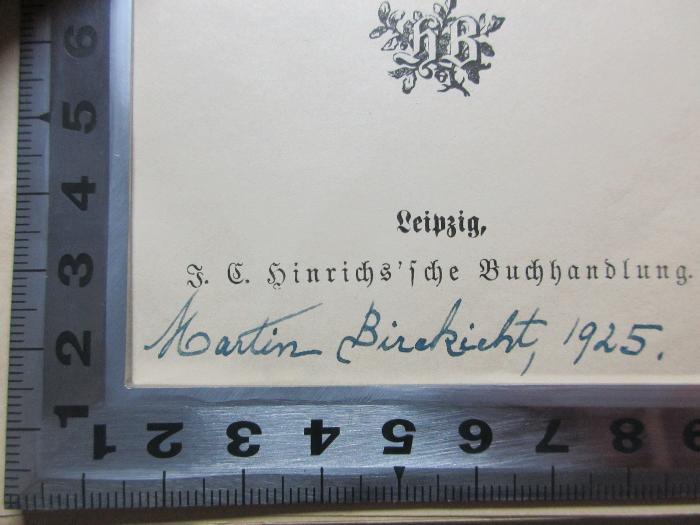 HB
Leipzig,
J. C. Hinrichs'sche Buchhandlung.
Martin Birckicht, 1925.
6
5
4
3
2
1
1 2 3 4 5 6 7 8 9